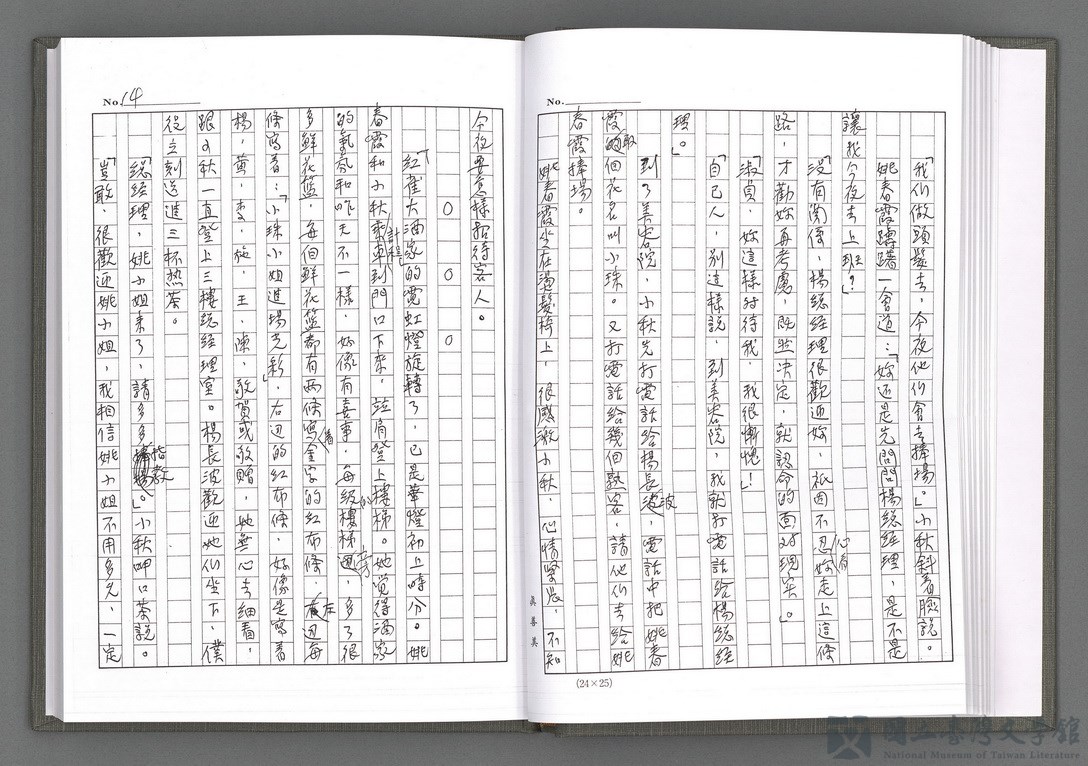 No.
「我们做頭髮去，今夜他们會去捧場。」小秋斜着臉說。
姚春霞躊躇一會道：「妳还是先問問楊總經理，是不是
讓我今夜去上班？」
「沒有関係，楊總經理很歡迎妳，祇因不忍心看妳走上這條
路，才勸妳再考慮，既然决定，就認命的面对現实。」
「淑貞，妳這樣对待我，我很慚愧！」
「自己人，別這樣說，到美容院，我就打電話給楊總經
理。」
到了美容院，小秋先打電話給楊長波，電話中把姚春
霞取個花名叫小珠。又打電話給幾個熟客，請他们去給姚
春霞捧場。
姚春霞坐在燙髮椅上，很感激小秋，心情緊張，不知
真善美
(24×25)
No. 14
今夜要怎樣招待客人。
○ ○ ○
「紅雀大酒家」的霓虹燈旋轉了，已是華燈初上時分。姚
春霞和小秋乘計程車到門口下來，並肩登上樓梯。她覚得酒家
的氣氛和昨天不一樣，好像有喜事，每級樓梯的旁，多了很
多鮮花籃，每個鮮花籃都有两條寫着金字的紅布條，左边每
條寫着：「小珠小姐進場光彩」右边的紅布條，好像是寫着
楊，黃，李，施，王，陳，敬賀或敬贈，她無心去細看，
跟小秋一直登上三樓總經理室。楊長波歡迎她们坐下，僕
役立刻送進三杯热茶。
「總經理，姚小姐来了，請多多指教。」小秋呷口茶說。
「豈敢，很歡迎姚小姐，我相信姚小姐不用多久，一定
國立臺灣文學館
National Museum of Taiwan Literature